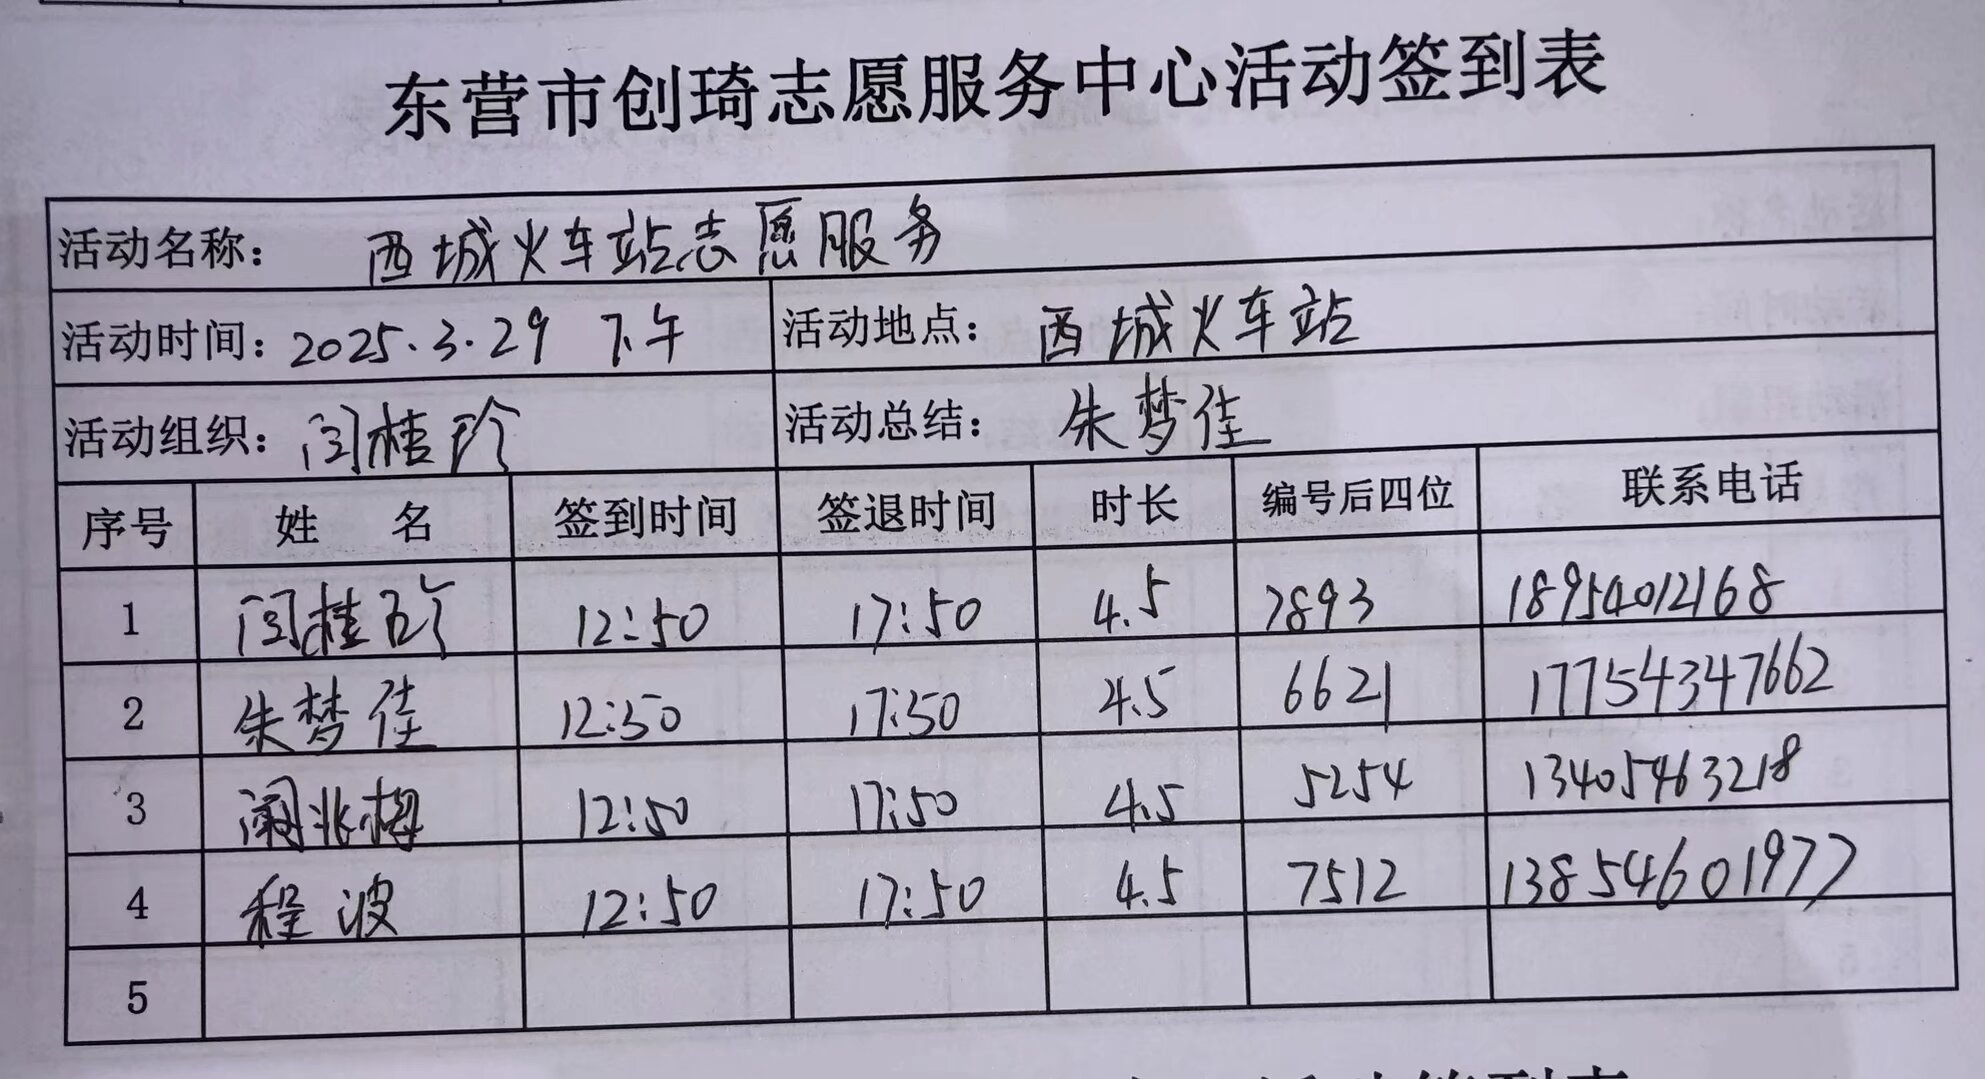 东营市创琦志愿服务中心活动签到表
活动名称： 西城火车站志愿服务
活动时间：2025.3.29 下午 活动地点： 西城火车站
活动组织：闫桂珍 活动总结： 朱梦佳
序号 姓 名 签到时间 签退时间 时长 编号后四位 联系电话
1 闫桂珍 12:50 17:50 4.5 7893 18954012168
2 朱梦佳 12:50 17:50 4.5 6621 17754347662
3 兆梅 12:50 17:50 4.5 5254 13405463218
4 程波 12:50 17:50 4.5 7512 13854601977
5